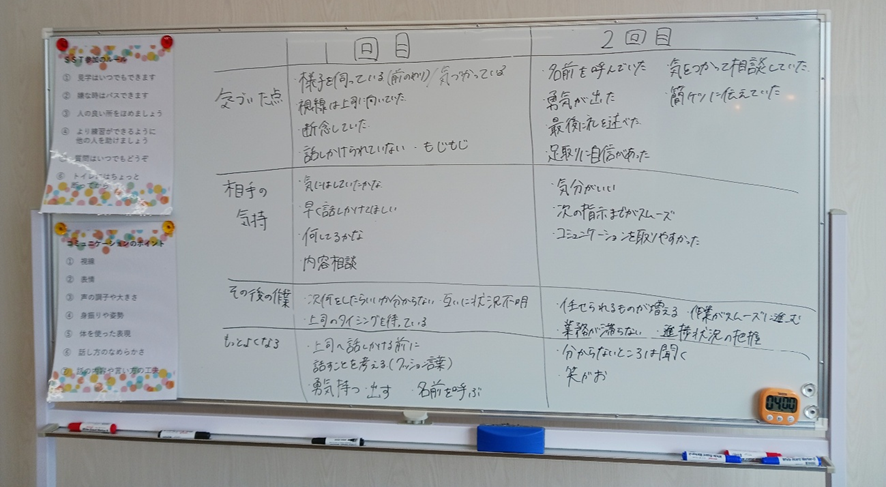 SST参加のルール
① 見学はいつでもできます
② 嫌な時はパスできます
③ 人の良い所をほめましょう
④ より練習ができるように
他の人を助けましょう
質問はいつでもどうぞ
⑥ トイレにはちょっと
コミュニケーションのポイント
① 視線
② 表情
③ 声の調子や大きさ
④ 身振りや姿勢
⑤ 体を使った表現
⑥ 話し方のなめらかさ
1回目
2回目
気づいた点
・様子を伺っている(前のめり)/気づかっている
視線は上司に向いていた
・断念していた
・話しかけられていない ・もじもじ
・名前を呼んでいた ・気をつかって相談していた
勇気が出た ・簡ケツに伝えていた
最後に礼を述べた
足取りに自信があった
相手の気持
・気にはしていたかな
・早く話しかけてほしい
・何してるかな
内容相談
・気分がいい
・次の指示までがスムーズ
・コミュニケーションを取りやすかった
その後の作業
・次何をしたらいいか分からない 互いに状況不明
・上司のタイミングを待っている
・任せられるものが増える ・作業がスムーズに進む
・業務が滞らない ・進捗状況の把握
もっとよくなる
・上司へ話しかける前に
話すことを考える(クッション言葉)
勇気持つ・出す ・名前を呼ぶ
・分からないところは聞く
・笑がお
04:00